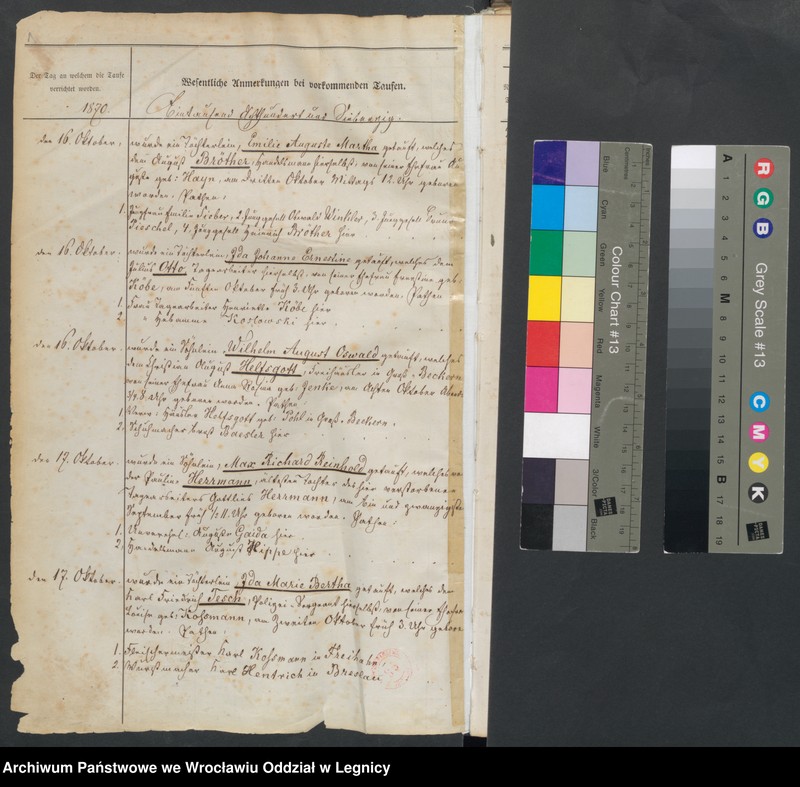 Der Tag an welchem die Taufe
verrichtet worden.
Wesentliche Anmerkungen bei vorkommenden Taufen.
1870.
Eintausend Achthundert und Siebenzig.
den 16. Oktober.
wurde ein Töchterlein, Emilie Auguste Martha getauft, welches
dem August Bröther, Handelsmann hierselbst, von seiner Ehefrau Au-
guste geb. Hayn, am dritten Oktober Mittags 12. Uhr geboren
worden. Pathen:
1. Jungfrau Emilie 2. Junggesell Oswald Winkler, 3. Junggesell
4. Junggesell Heinrich Bröther hier.
den 16. Oktober.
wurde ein Töchterlein, Ida Johanne Ernestine getauft, welches dem
Julius Otto, Tagearbeiter hierselbst von seiner Ehefrau Ernestine geb.
Köbe, am fünften Oktober früh 3. Uhr geboren worden. Pathen
1. Frau Tagearbeiter Henriette Köbe hier
2. " Hebamme Koslowski hier.
den 16. Oktober.
wurde ein Söhnlein, Wilhelm August Oswald getauft, welches
dem Christian August Helfsgott, Freihäusler in Groß-Beckern
von seiner Ehefrau Anna Rosina geb. Jenke, am achten Oktober Abends
8. Uhr geboren worden. Pathen:
1. Häusler Helfsgott geb. Pohl in Groß-Beckern.
2. Schuhmacher Ernst Baesler hier
den 17. Oktober.
wurde ein Söhnlein, Max Richard Reinhold getauft, welches von
der Pauline Herrmann, ältesten Tochter des hier verstorbenen
Tagearbeiters Gottlieb Herrmann, am Ein und zwanzigsten
September früh 11. Uhr geboren worden. Pathen:
1. Auguste Gaida hier.
2. Handelsmann August Hippe hier.
den 17. Oktober.
wurde ein Töchterlein, Ida Marie Bertha getauft, welches dem
Karl Friedrich Tesch, Polizei-Sergeant hierselbst, von seiner Ehefrau
Louise geb. Kossmann, am zweiten Oktober früh 3. Uhr geboren
worden. Pathen:
1. Fleischermeister Karl Kossmann in Freihahn.
2. Wurstmacher Karl Hentrich in Breslau
Colour Chart #13
Blue
Cyan
Green
Yellow
Red
Magenta
White
3/Color
Black
Centimetres
Inches
Grey Scale #13
R
G
B
C
M
Y
K
A 1 2 3 4 5 6 M 8 9 10 11 12 13 14 15 B 17 18 19
Archiwum Państwowe we Wrocławiu Oddział w Legnicy